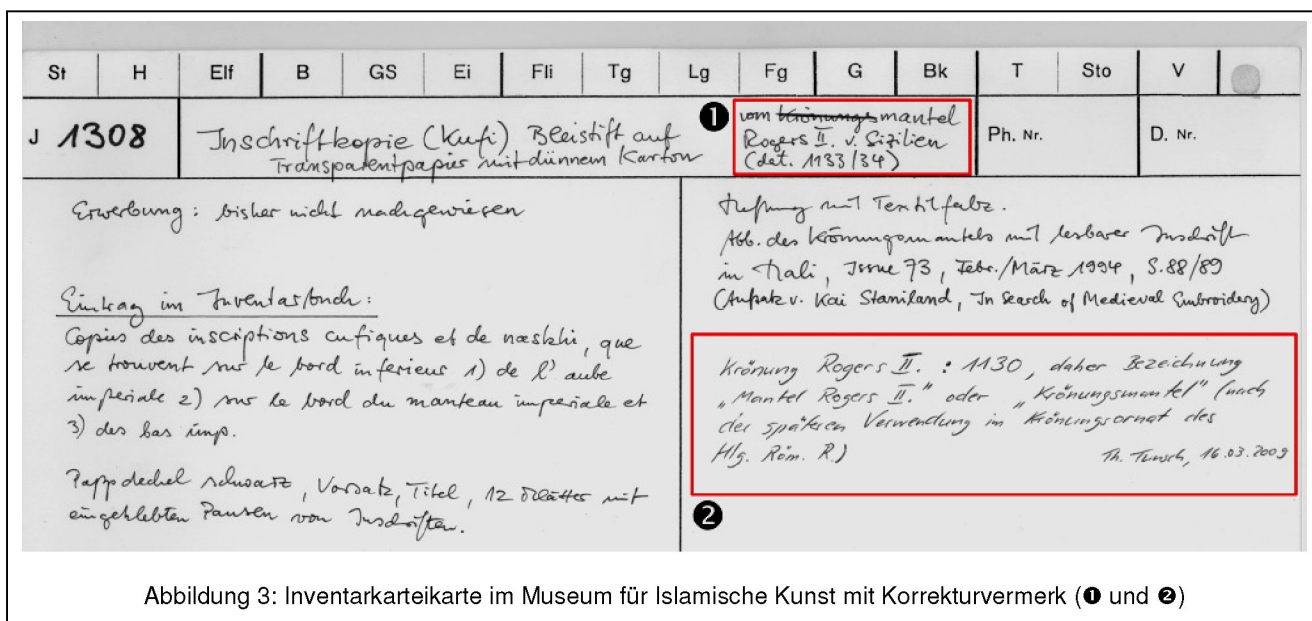 St H Elf B GS Ei Fli Tg Lg Fg G Bk T Sto V
J 1308
Inschriftkopie (Kufi) Bleistift auf
Transparentpapier mit dünnem Karton
❶
vom Krönungsmantel
Rogers II. v. Sizilien
(dat. 1133/34)
Ph. Nr.
D. Nr.
Erwerbung: bisher nicht nachgewiesen
Eintrag im Inventarbuch:
Copies des inscriptions cufiques et de naskhi, que
se trouvent sur le bord inferieur 1) de l'aube
imperiale 2) sur le bord du manteau imperiale et
3) des bas imp.
Pappdeckel schwarz, Vorsatz, Titel, 12 Blätter mit
eingeklebten Pausen von Inschriften.
mit Textilfabz.
Abb. des Krönungsmantels mit lesbarer Inschrift
in Hali, Issue 73, Febr./März 1994, S. 88/89
(Aufsatz v. Kai Staniland, In Search of Medieval Embroidery)
Krönung Rogers II. : 1130, daher Bezeichnung
„Mantel Rogers II." oder „Krönungsmantel" (nach
der späteren Verwendung im Krönungsornat des
Hlg. Röm. R.)
Th. Tunsch, 16.03.2009
❷
Abbildung 3: Inventarkarteikarte im Museum für Islamische Kunst mit Korrekturvermerk (❶ und ❷)